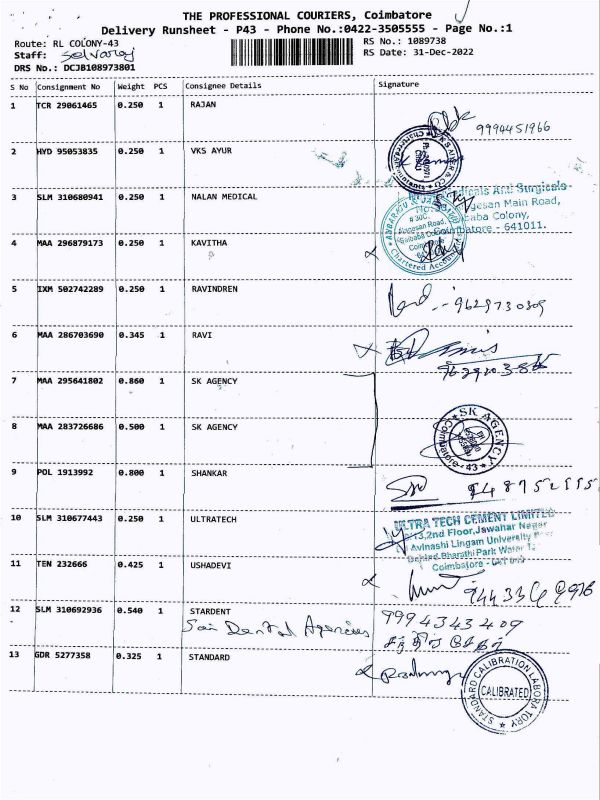 THE PROFESSIONAL COURIERS, Coimbatore
Delivery Runsheet - P43 - Phone No.:0422-3505555 - Page No.:1
Route: RL COLONY-43
RS No.: 1089738
Staff: Selvaraj
RS Date: 31-Dec-2022
DRS No.: DCJB108973801
S No Consignment No Weight PCS Consignee Details Signature
1 TCR 29061465 0.250 1 RAJAN
9994451966
2 HYD 95053835 0.250 1 VKS AYUR
3 SLM 310680941 0.250 1 NALAN MEDICAL
And Surgicals
Main Road,
Colony,
Coimbatore - 641011.
4 MAA 296879173 0.250 1 KAVITHA
Chartered Accountants
5 IXM 502742289 0.250 1 RAVINDREN
9629730309
6 MAA 286703690 0.345 1 RAVI
7 MAA 295641802 0.860 1 SK AGENCY
8 MAA 283726686 0.500 1 SK AGENCY
SK AGENCY
Coimbatore - 43
9 POL 1913992 0.800 1 SHANKAR
10 SLM 310677443 0.250 1 ULTRATECH
ULTRA TECH CEMENT LIMITED
2nd Floor, Jawahar Nagar
Avinashi Lingam University
Behind Bharathi Park Water
Coimbatore -
11 TEN 232666 0.425 1 USHADEVI
12 SLM 310692936 0.540 1 STARDENT
Sai Dental Agencies
9994343409
13 GDR 5277358 0.325 1 STANDARD
STANDARD CALIBRATION LABORATORY
CALIBRATED